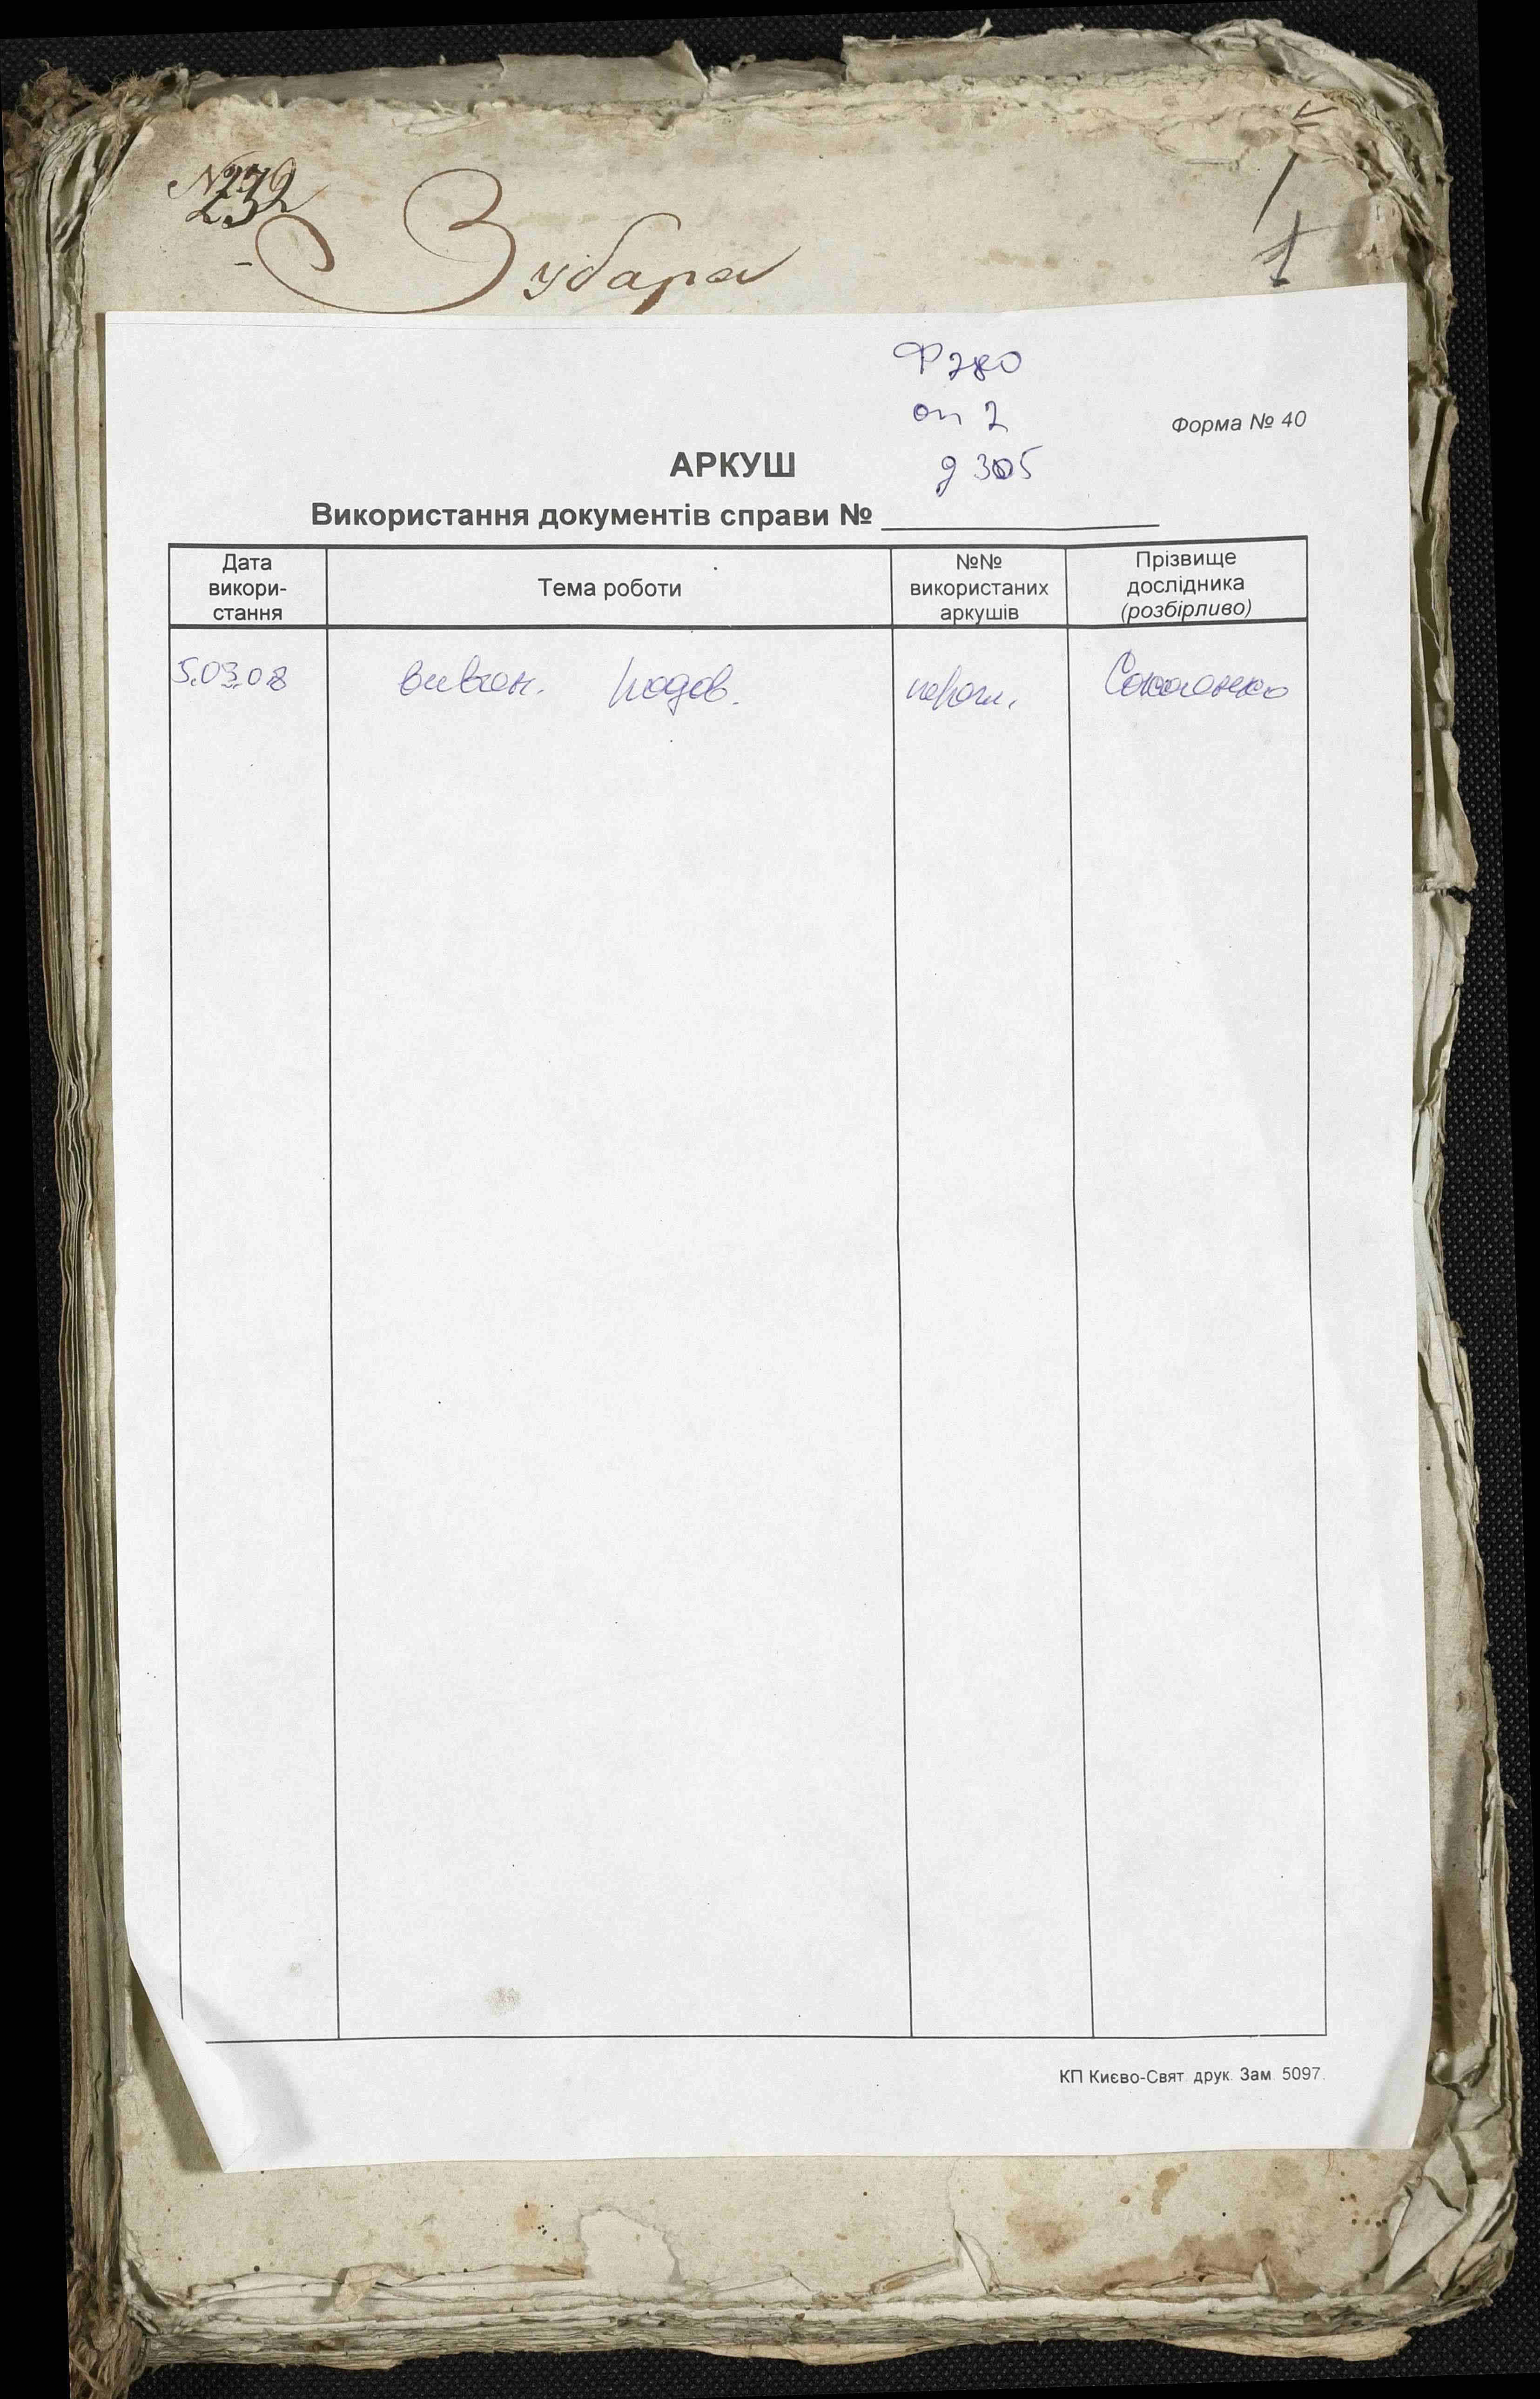 № 232
Зубара
1
1
Ф 280
оп 2
Форма № 40
АРКУШ
д 305
Використання документів справи №
Дата
викори-
стання
Тема роботи
№№
використаних
аркушів
Прізвище
дослідника
(розбірливо)
5.03.08 вивч. родов. перегл.
КП Києво-Свят. друк. Зам. 5097.